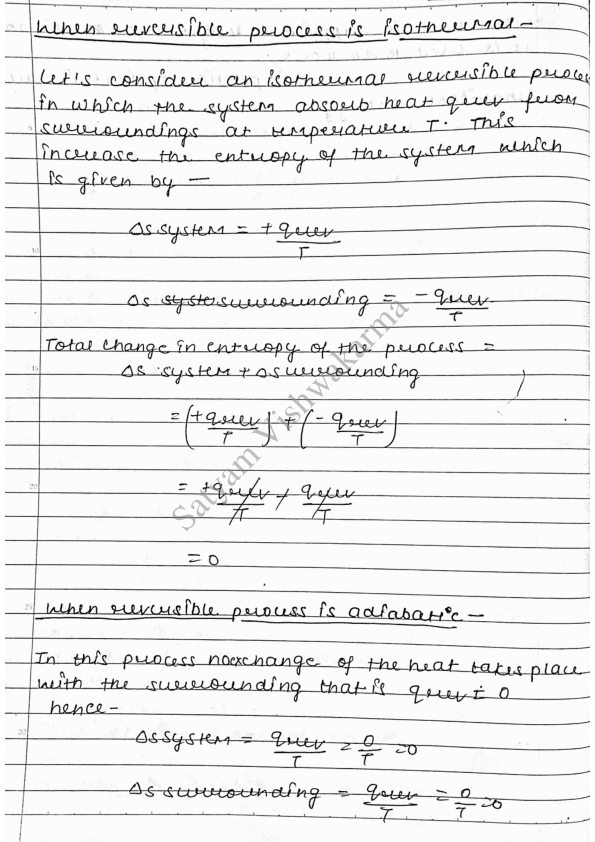 When reversible process is isothermal-
Let's consider an isothermal reversible process
in which the system absorb heat qrev from
surroundings at temperature T. This
increase the entropy of the system which
is given by —
Δs system = +qrev/T
Δs surrounding = -qrev/T
Total change in entropy of the process =
Δs system + Δs surrounding
= (+qrev/T) + (-qrev/T)
= +qrev/T - qrev/T
= 0
When reversible process is adiabatic -
In this process noexchange of the heat takes place
with the surrounding that is qrev = 0
hence-
Δs system = qrev/T = 0/T = 0
Δs surrounding = qrev/T = 0/T = 0
Satyam Vishwakarma